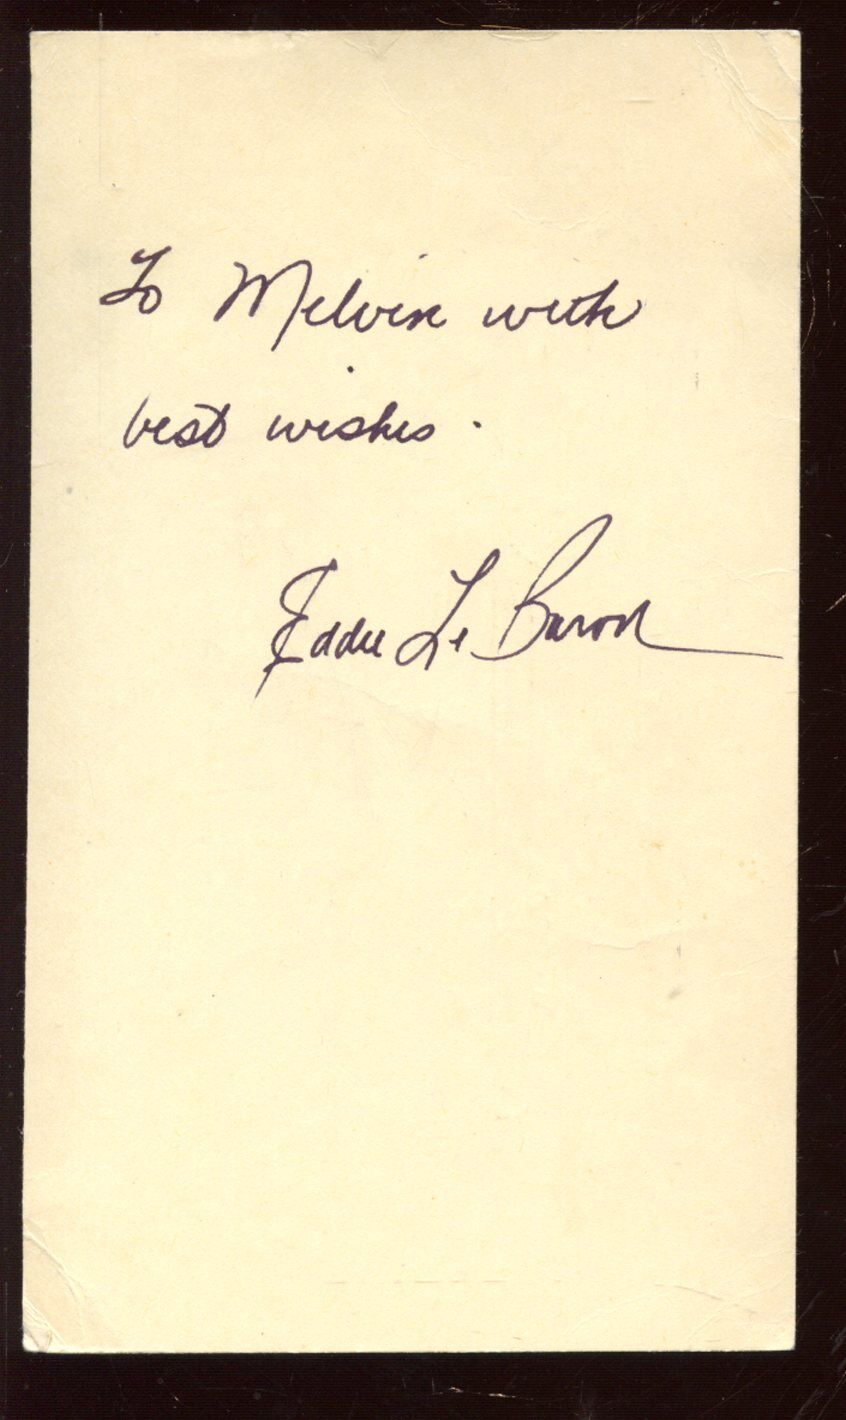 To Melvin with
best wishes.
Eddie Le Baron